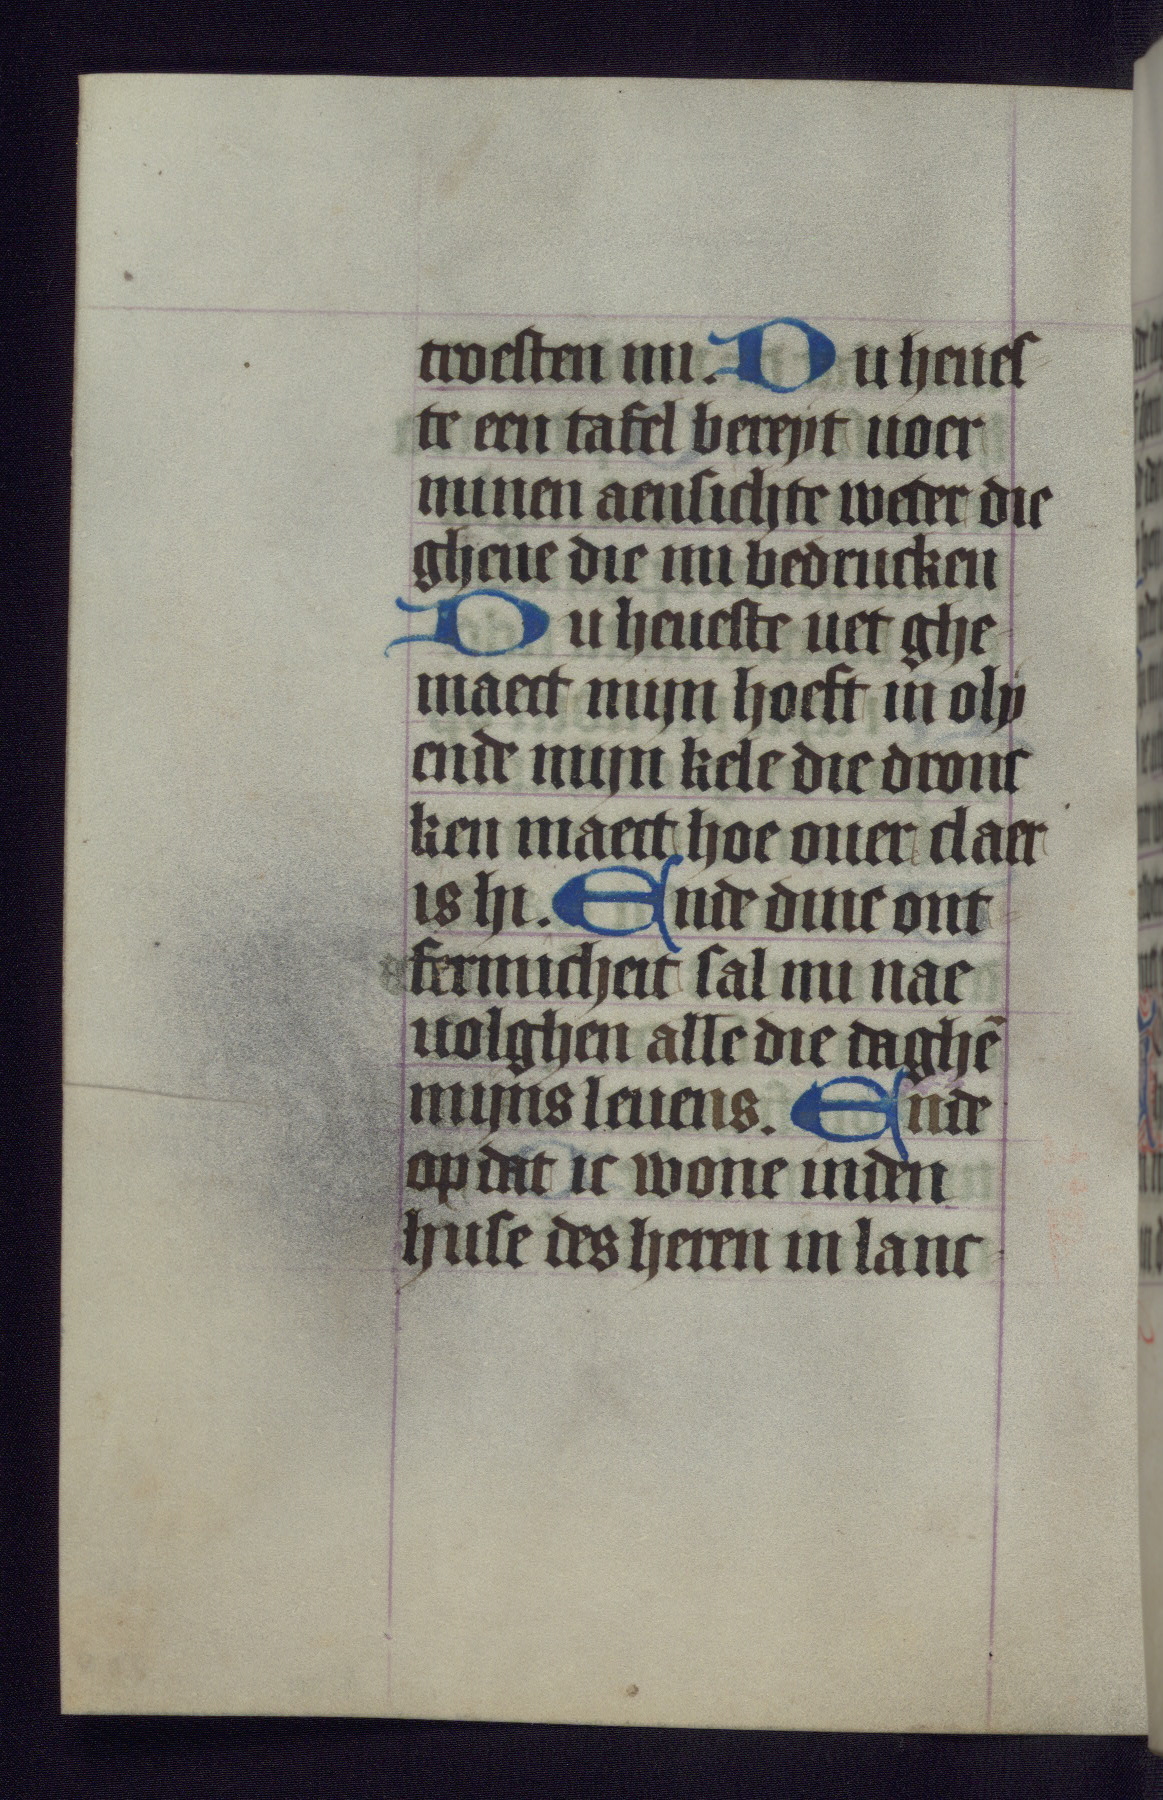 troesten mi. Du heues
te een tafel bereyt uoer
minen aensichte weder die
ghene die mi bedrucken
Du heueste uet ghe
maect mijn hoeft in oly
ende mijn kele die dronc
ken maect hoe ouer claer
is hi. Ende dine ont
fermicheit sal mi nae
uolghen alle die daghē
mijns leuens. Ende
op dat ic wone inden
huse des heren in lanc